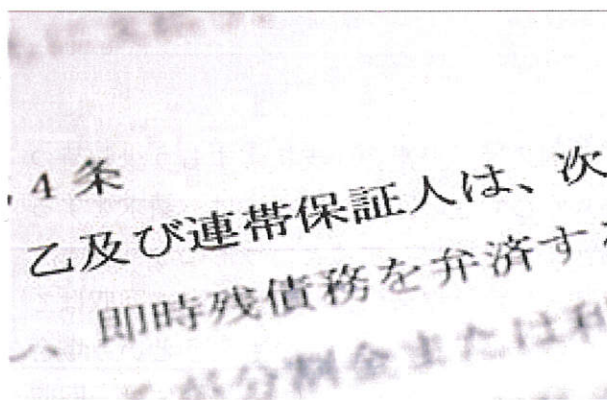 4条
乙及び連帯保証人は、次
、即時残債務を弁済する
乙が分割金または利